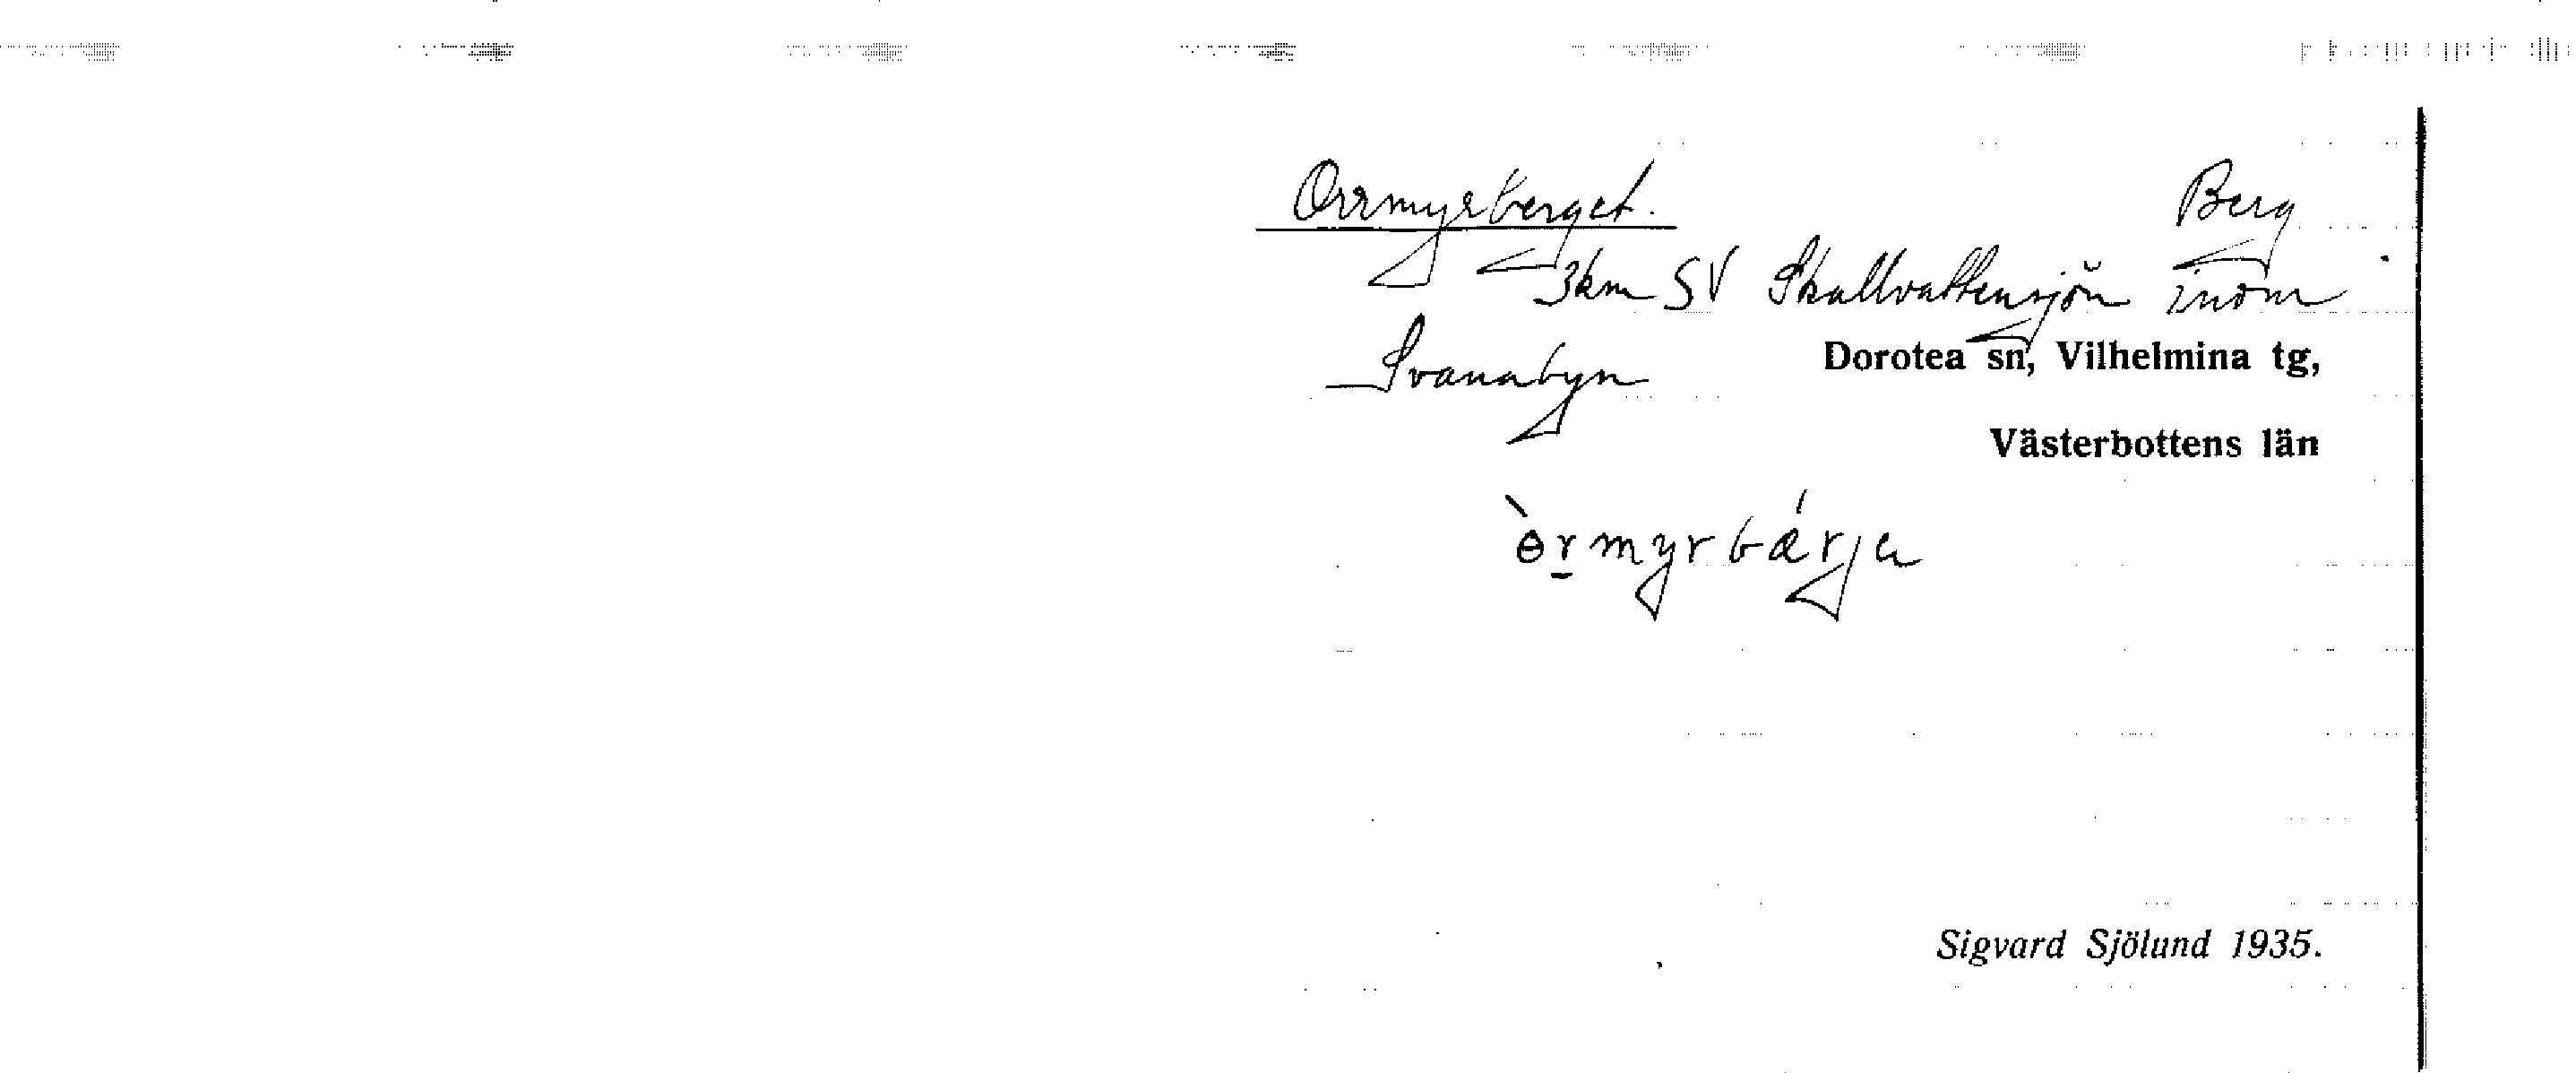 Orrmyrberget. Berg
3km SV Skallvattensjön inom
Svanabyn Dorotea sn, Vilhelmina tg,
Västerbottens län
ɵ̀r̲myrbǽrjɐ
Sigvard Sjölund 1935.